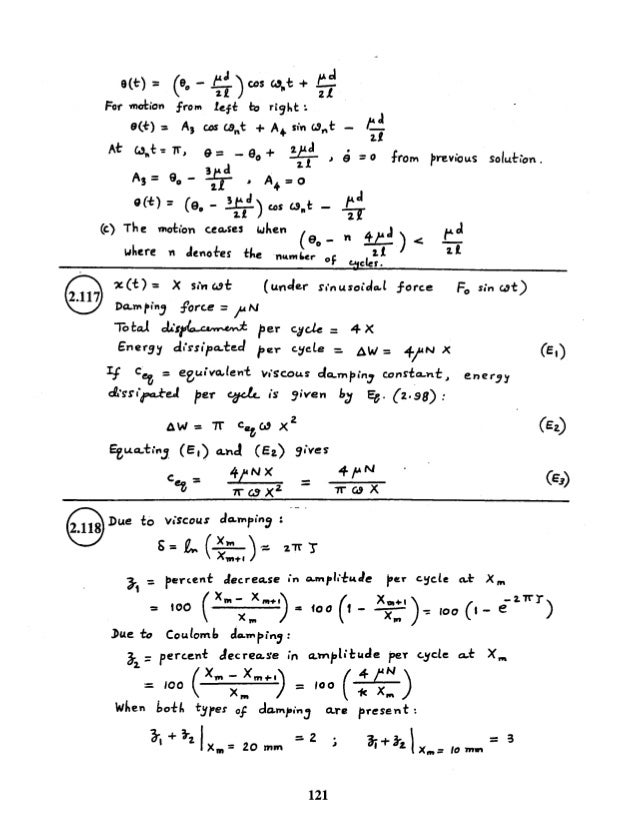 θ(t) = (θ₀ − μd/2l) cos ωₙt + μd/2l
For motion from left to right :
θ(t) = A₃ cos ωₙt + A₄ sin ωₙt − μd/2l
At ωₙt = π, θ = − θ₀ + 2μd/2l , θ̇ = 0 from previous solution.
A₃ = θ₀ − 3μd/2l , A₄ = 0
θ(t) = (θ₀ − 3μd/2l) cos ωₙt − μd/2l
(c) The motion ceases when (θ₀ − n 4μd/2l) < μd/2l
where n denotes the number of cycles.
2.117 x(t) = X sin ωt (under sinusoidal force F₀ sin ωt)
Damping force = μN
Total displacement per cycle = 4X
Energy dissipated per cycle = ΔW = 4μN X (E₁)
If c_eq = equivalent viscous damping constant, energy
dissipated per cycle is given by Eq. (2.98) :
ΔW = π c_eq ω X² (E₂)
Equating (E₁) and (E₂) gives
c_eq = 4μNX/πωX² = 4μN/πωX (E₃)
2.118 Due to viscous damping :
δ = ln (Xₘ/Xₘ₊₁) = 2π ζ
ʒ₁ = percent decrease in amplitude per cycle at Xₘ
= 100 ((Xₘ − Xₘ₊₁)/Xₘ) = 100 (1 − Xₘ₊₁/Xₘ) = 100 (1 − e^(−2πζ))
Due to Coulomb damping :
ʒ₂ = percent decrease in amplitude per cycle at Xₘ
= 100 ((Xₘ − Xₘ₊₁)/Xₘ) = 100 (4μN/k Xₘ)
When both types of damping are present :
ʒ₁ + ʒ₂ |Xₘ = 20 mm = 2 ; ʒ₁ + ʒ₂ |Xₘ = 10 mm = 3
121